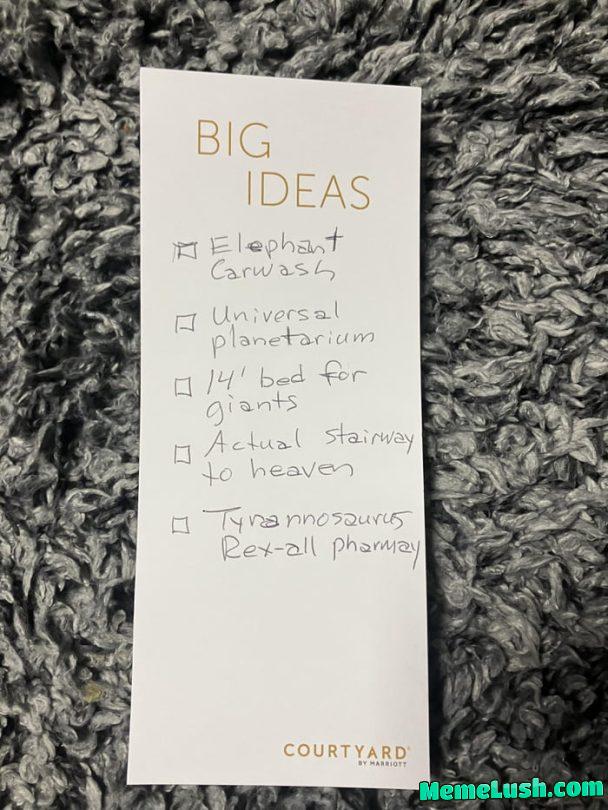 BIG
IDEAS
Elephant
Carwash
Universal
planetarium
14' bed for
giants
Actual stairway
to heaven
Tyrannosaurus
Rex-all pharmay
COURTYARD®
BY MARRIOTT
MemeLush.com